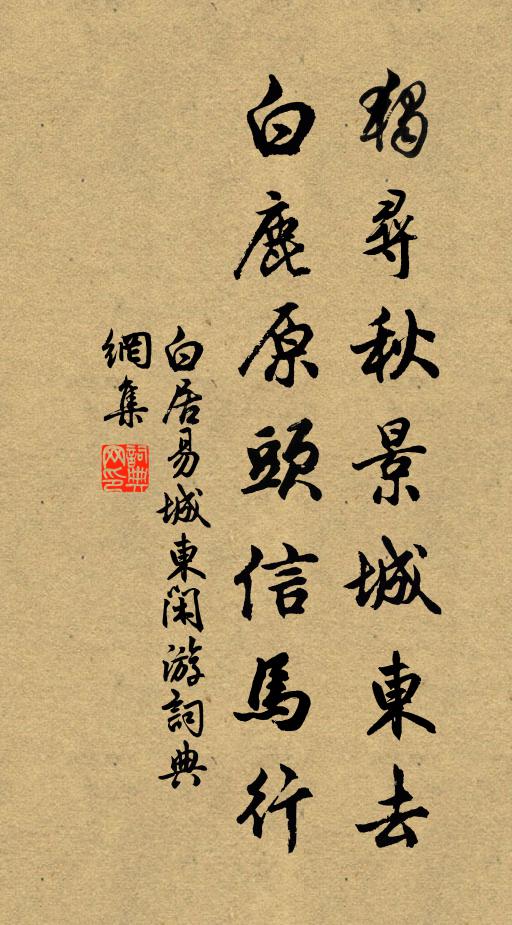 獨尋秋景城東去
白鹿原頭信馬行
白居易城東閑游詞典
網集
詞典網印